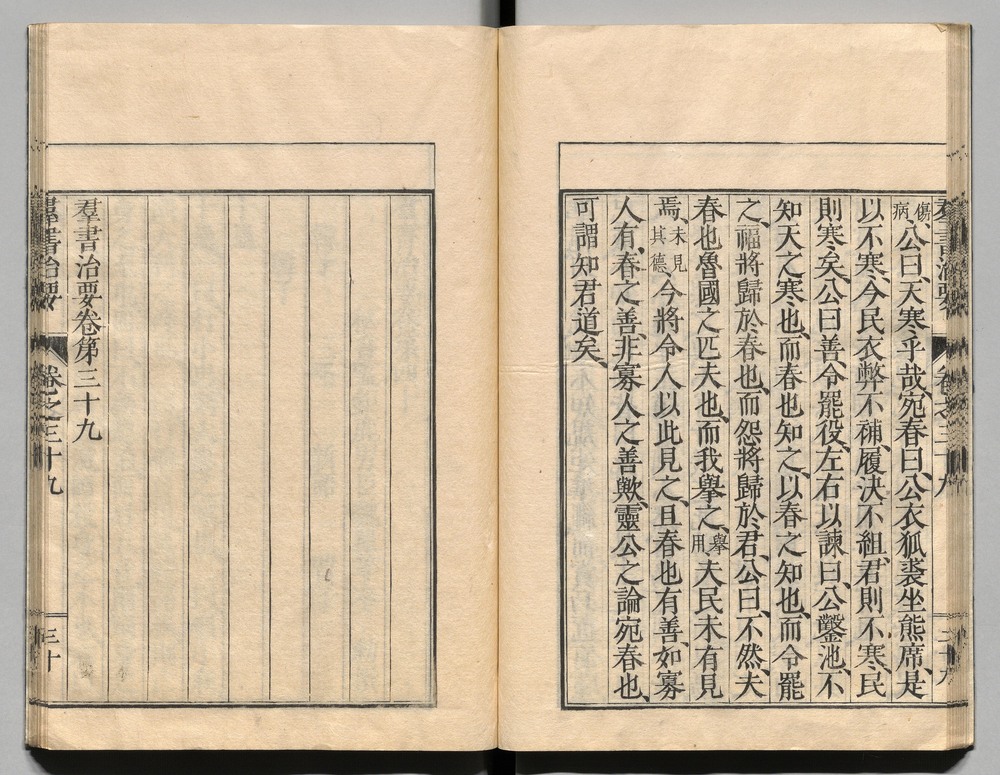 羣書治要 卷之三十九 二十九
傷病、公曰、天寒乎哉、宛春曰、公衣狐裘坐熊席、是
以不寒、今民衣弊不補、履決不組、君則不寒、民
則寒矣、公曰善、令罷役、左右以諫曰、公鑿池、不
知天之寒也、而春也知之、以春之知也、而令罷
之、福將歸於春也、而怨將歸於君、公曰、不然、夫
春也魯國之匹夫也、而我擧之、擧用夫民未有見
焉、未見其德、今將令人以此見之、且春也有善、如寡
人有、春之善、非寡人之善歟、靈公之論宛春也、
可謂知君道矣、
羣書治要卷第三十九
羣書治要 卷之三十九 三十